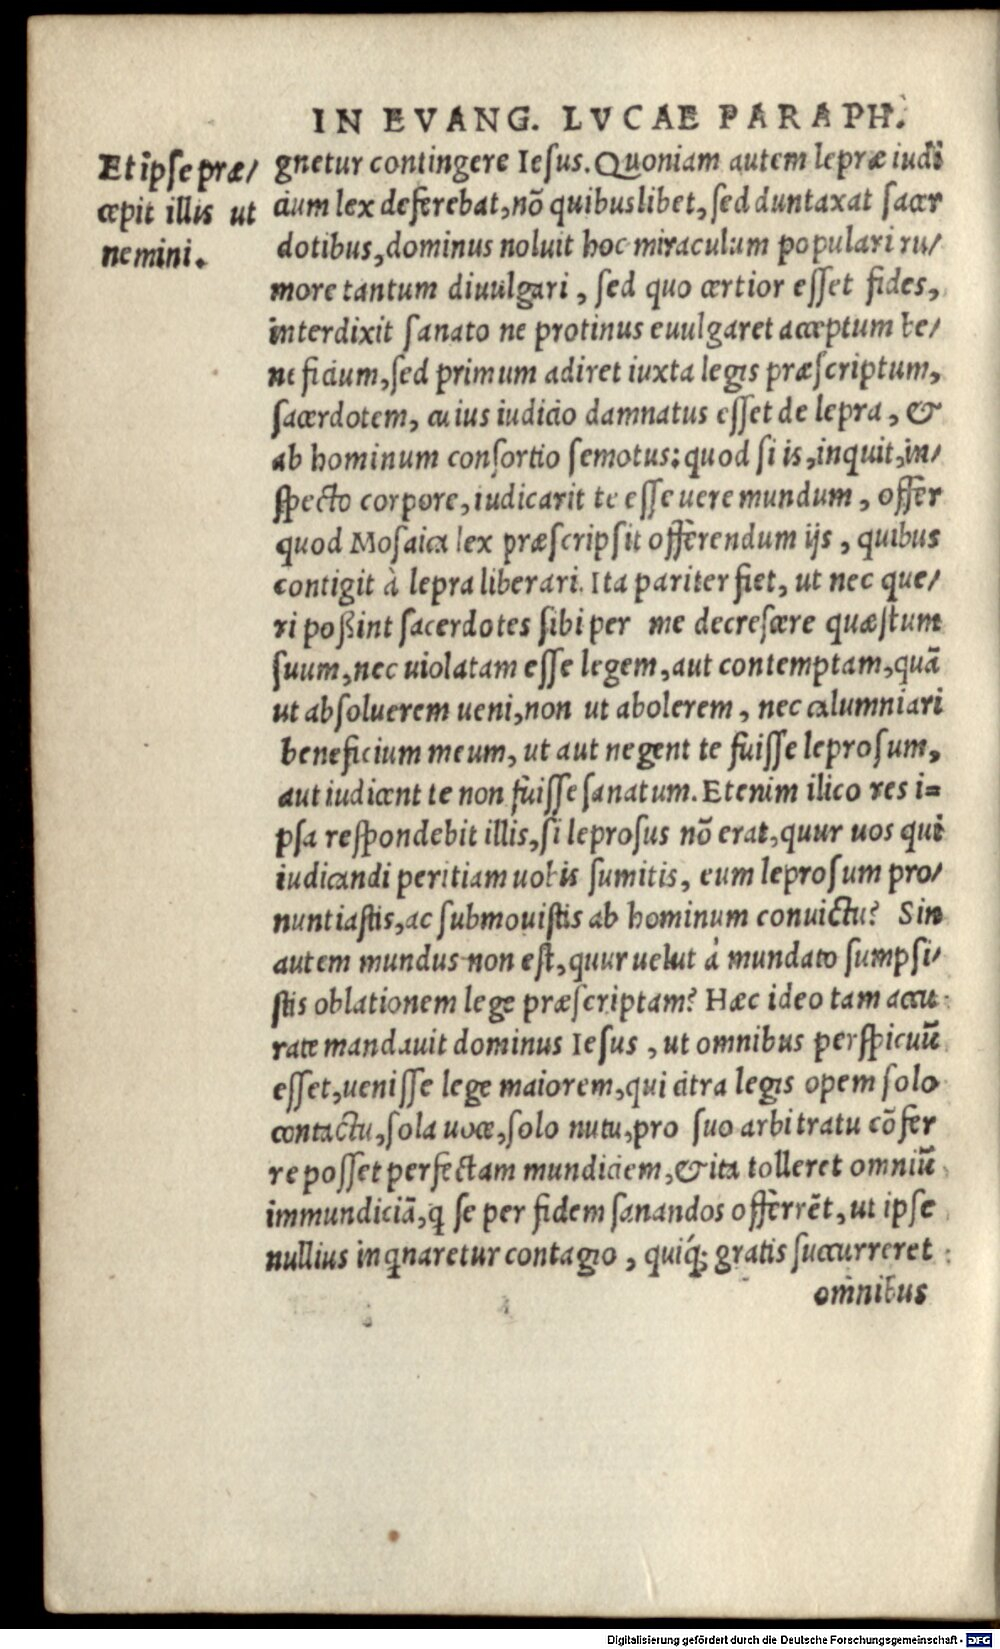 IN EVANG. LVCAE PARAPH.
Et ipse præ/
cepit illis ut
nemini.
gnetur contingere Iesus. Quoniam autem lepræ iudi
cium lex deferebat, nõ quibuslibet, sed duntaxat sacer
dotibus, dominus noluit hoc miraculum populari ru/
more tantum diuulgari, sed quo certior esset fides,
interdixit sanato ne protinus euulgaret acceptum be/
neficium, sed primum adiret iuxta legis præscriptum,
sacerdotem, cuius iudicio damnatus esset de lepra, &
ab hominum consortio semotus: quod si is, inquit, in/
specto corpore, iudicarit te esse uere mundum, offer
quod Mosaica lex præscripsit offerendum ijs, quibus
contigit à lepra liberari. Ita pariter fiet, ut nec que/
ri poßint sacerdotes sibi per me decrescere quæstum
suum, nec uiolatam esse legem, aut contemptam, quã
ut absoluerem ueni, non ut abolerem, nec calumniari
beneficium meum, ut aut negent te fuisse leprosum,
aut iudicent te non fuisse sanatum. Etenim ilico res i=
psa respondebit illis, si leprosus nõ erat, quur uos qui
iudicandi peritiam uobis sumitis, eum leprosum pro/
nuntiastis, ac submouistis ab hominum conuictu? Sin
autem mundus non est, quur uelut à mundato sumpsi/
stis oblationem lege præscriptam? Hæc ideo tam accu
rate mandauit dominus Iesus, ut omnibus perspicuũ
esset, uenisse lege maiorem, qui citra legis opem solo
contactu, sola uoce, solo nutu, pro suo arbitratu cõfer
re posset perfectam mundiciem, & ita tolleret omniũ
immundiciã, ꝗ se per fidem sanandos offerrẽt, ut ipse
nullius inꝗnaretur contagio, quiq́; gratis succurreret
omnibus
Digitalisierung gefördert durch die Deutsche Forschungsgemeinschaft - DFG